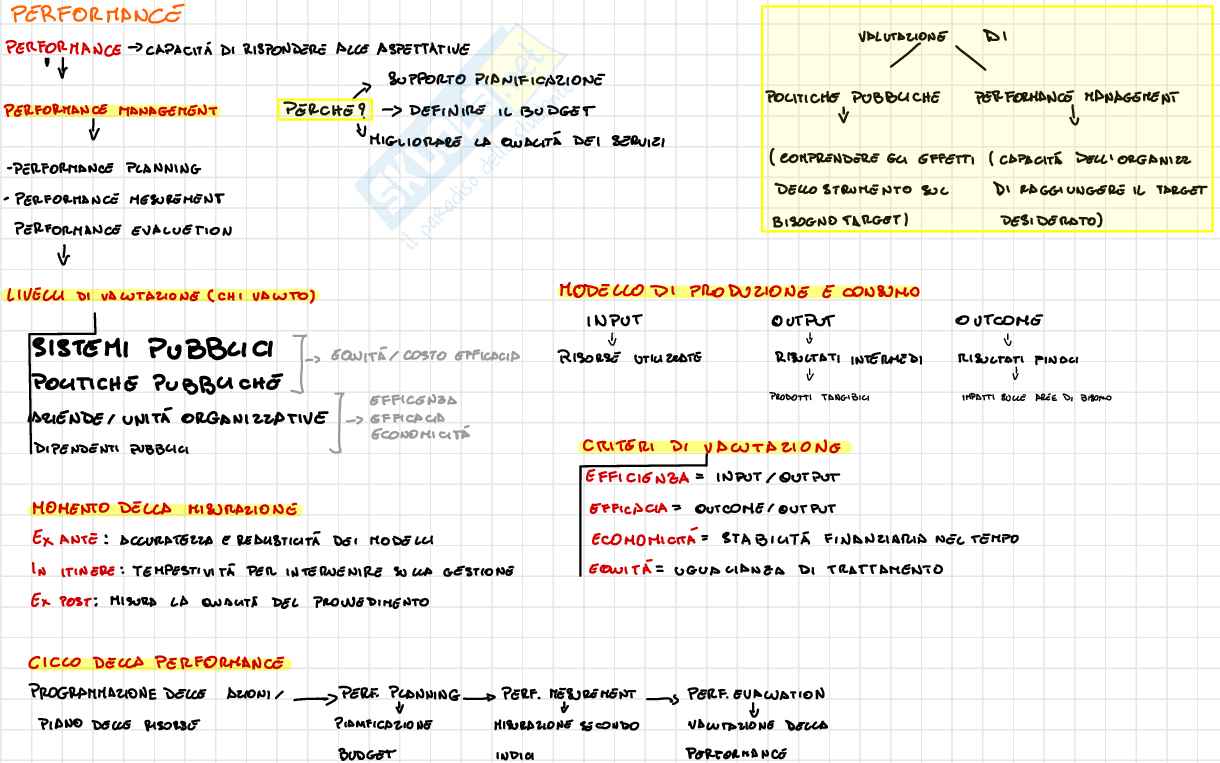 PERFORMANCE
PERFORMANCE → CAPACITÁ DI RISPONDERE ALLE ASPETTATIVE
PERFORMANCE MANAGEMENT
PERCHE?
→ SUPPORTO PIANIFICAZIONE
→ DEFINIRE IL BUDGET
MIGLIORARE LA QUALITÁ DEI SERVIZI
-PERFORMANCE PLANNING
- PERFORMANCE MESUREMENT
PERFORMANCE EVALUETION
VALUTAZIONE DI
POLITICHE PUBBLICHE
PERFORMANCE MANAGEMENT
(COMPRENDERE GLI EFFETTI
DELLO STRUMENTO SUL
BISOGNO TARGET)
(CAPACITÁ DELL'ORGANIZZ
DI RAGGIUNGERE IL TARGET
DESIDERATO)
LIVELLI DI VALUTAZIONE (CHI VALUTO)
SISTEMI PUBBLICI
POLITICHE PUBBLICHE
→ EQUITÁ/COSTO EFFICACIA
AZIENDE/UNITÁ ORGANIZZATIVE
DIPENDENTI PUBBLICI
EFFICENZA
→ EFFICACIA
ECONOMICITÁ
MODELLO DI PRODUZIONE E CONSUMO
INPUT
RISORSE UTILIZZATE
OUTPUT
RISULTATI INTERMEDI
PRODOTTI TANGIBILI
OUTCOME
RISULTATI FINALI
IMPATTI SULLE AREE DI BISOGNO
CRITERI DI VALUTAZIONE
EFFICIENZA = INPUT/OUTPUT
EFFICACIA = OUTCOME/OUTPUT
ECONOMICITÁ = STABILITÁ FINANZIARIA NEL TEMPO
EQUITÁ = UGUAGLIANZA DI TRATTAMENTO
MOMENTO DELLA MISURAZIONE
EX ANTE: ACCURATEZZA E REALISTICITÁ DEI MODELLI
IN ITINERE: TEMPESTIVITÁ PER INTERVENIRE SULLA GESTIONE
EX POST: MISURA LA QUALITÁ DEL PROVVEDIMENTO
CICLO DELLA PERFORMANCE
PROGRAMMAZIONE DELLE AZIONI/
PIANO DELLE RISORSE
→ PERF. PLANNING
PIANIFICAZIONE
BUDGET
→ PERF. MESUREMENT
MISURAZIONE SECONDO
INDICI
→ PERF. EVALUATION
VALUTAZIONE DELLA
PERFORMANCE